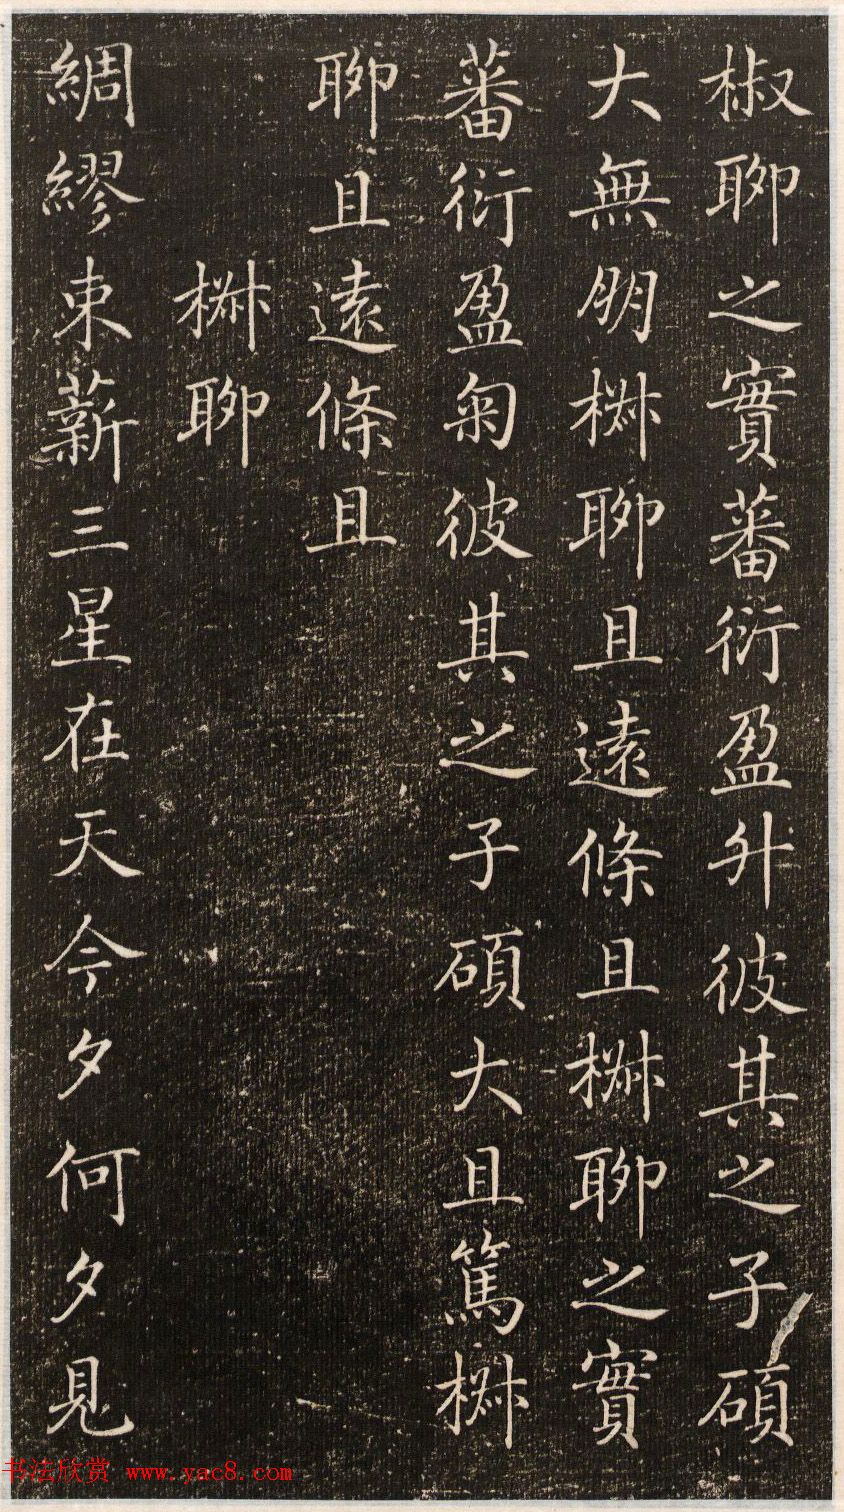 椒聊之實蕃衍盈升彼其之子碩
大無朋椒聊且遠條且椒聊之實
蕃衍盈匊彼其之子碩大且篤椒
聊且遠條且
椒聊
綢繆束薪三星在天今夕何夕見
书法欣赏 www.yac8.com